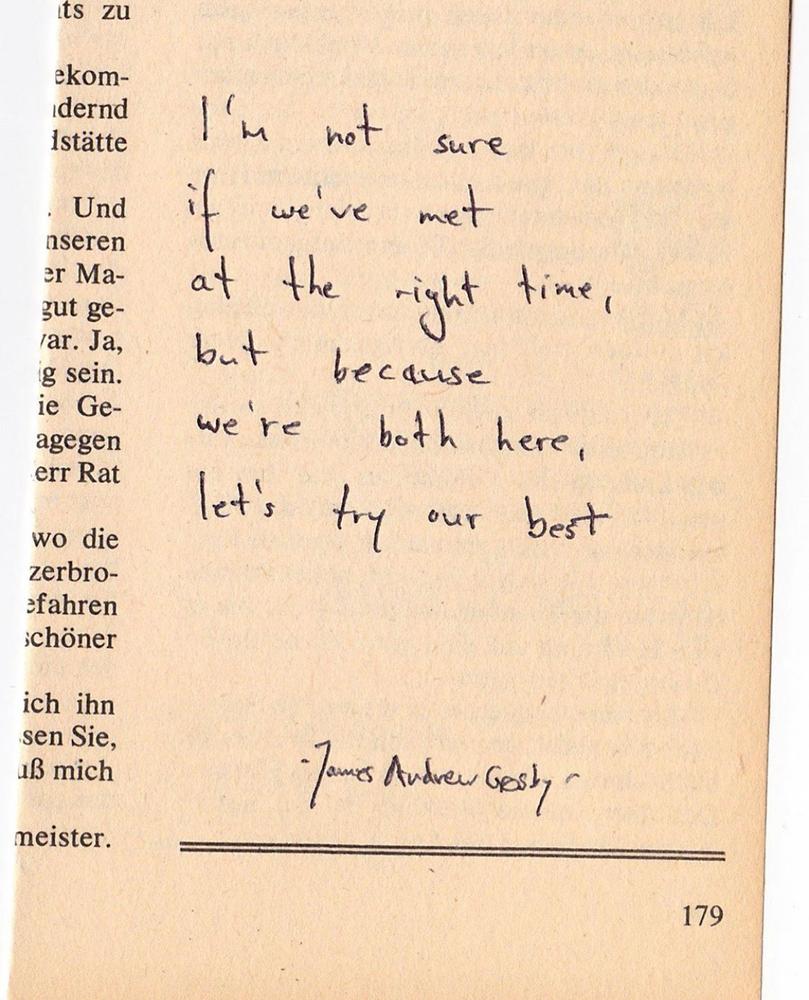 ts zu
ekom-
dernd
dstätte
. Und
nseren
er Ma-
gut ge-
var. Ja,
g sein.
ie Ge-
agegen
err Rat
wo die
zerbro-
efahren
schöner
ich ihn
sen Sie,
uß mich
meister.
I'm not sure
if we've met
at the right time,
but because
we're both here,
let's try our best
-James Andrew Crosby-
179